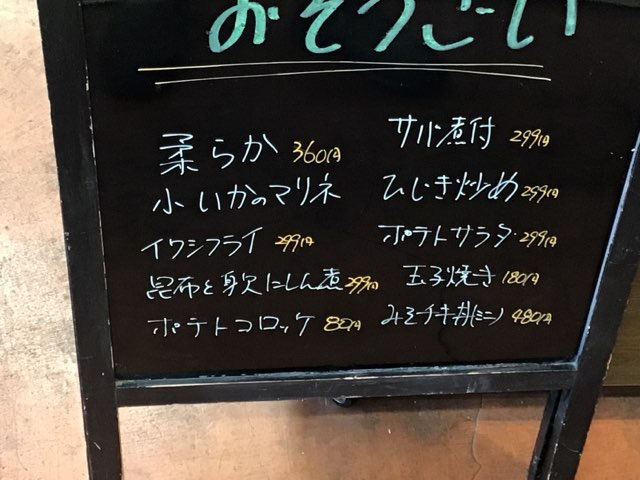 おそうざい
柔らか 360円
小いかのマリネ
イワシフライ 299円
昆布と身欠にしん煮 299円
ポテトコロッケ 80円
サバ煮付 299円
ひじき炒め 299円
ポテトサラダ 299円
玉子焼き 180円
みそチキ丼(ミニ) 480円